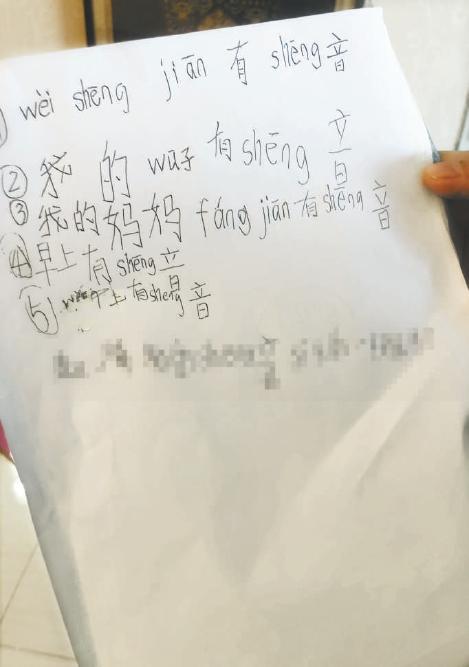 ① wèi shēng jiān 有 shēng 音
② 我 的 wūzi 有 shēng 音
③ 我的妈妈 fáng jiān 有 shēng 音
④ 早上有 shēng 音
⑤ 上有 shēng 音